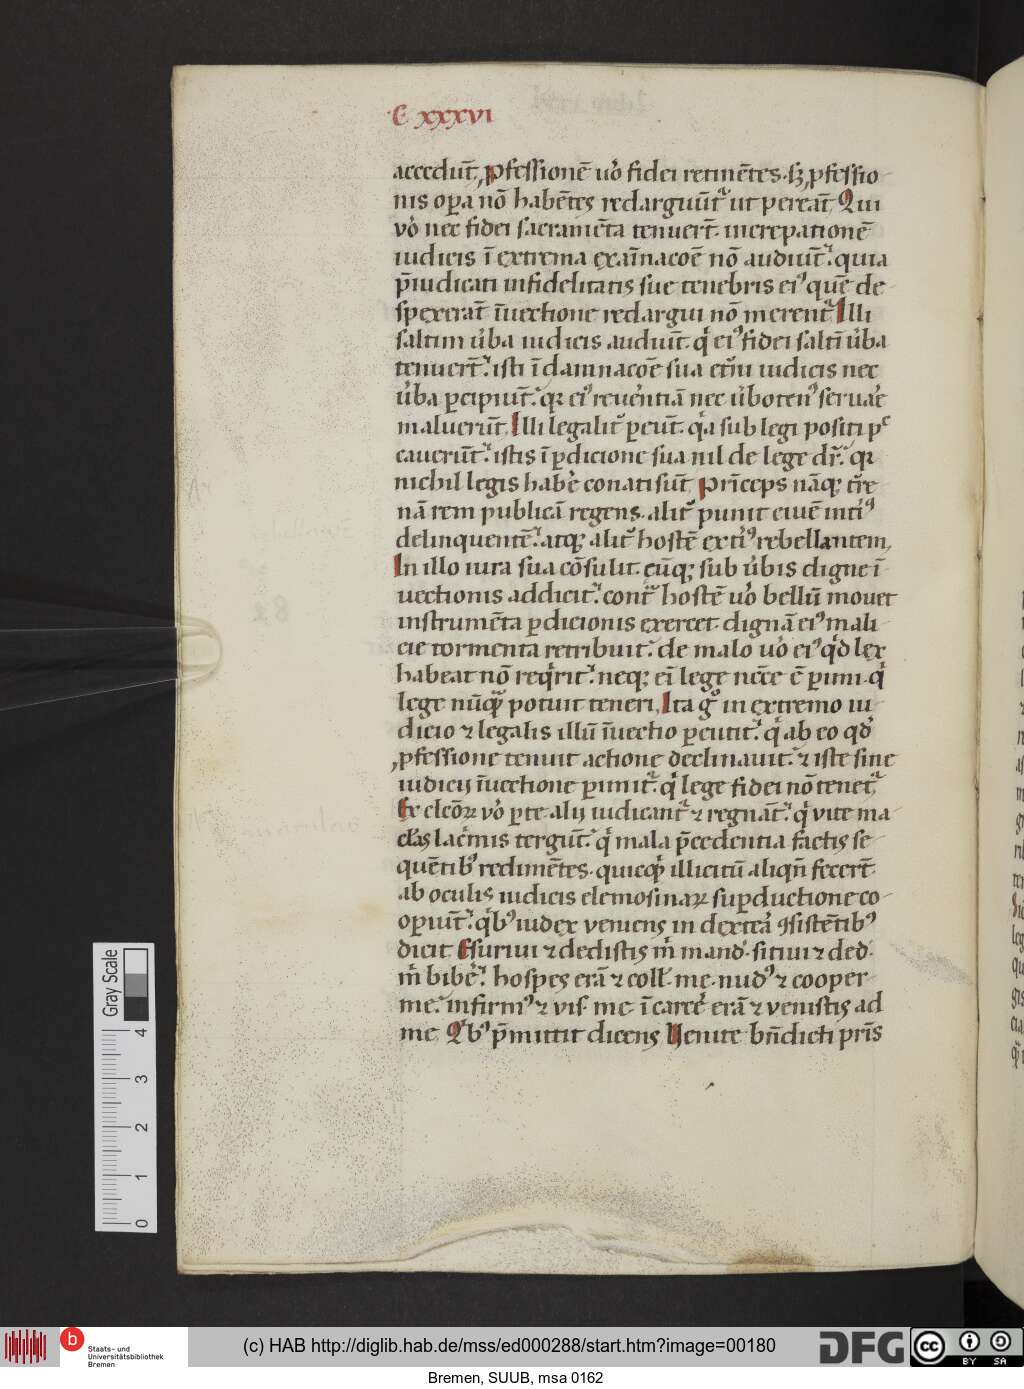 C xxxvi
accedūt, ꝓfessionē uo᷎ fidei retinētes. sꝫ ꝓfessio
nis oꝑa nō habētes redarguūt᷑ ut pereāt, Qui
vo᷎ nec fidei sacramēta tenuert̄. increpationē
iudicis ī extrema exaīnacōe nō audiūt᷑. quia
p̄iudicati infidelitatis sue tenebris eiꝰ quē de
spexerāt īuectione redargui nō merent᷑ Illi
saltim u᷎ba iudicis audiūt. qͥ eiꝰ fidei saltī u᷎ba
tenuert̄. isti ī damnacōe sua et᷎ni iudicis nec
u᷎ba ꝑcipiūt. qꝛ eiꝰ reue᷎ntiā nec u᷎botenꝰ seruar᷎e
maluerūt, Illi legalit᷑ ꝑeūt. qͥa sub legi positi pᶜ
cauerūt. istis ī ꝑdicione sua nil de lege dr̄. qꝛ
nichil legis habe᷎ conati sūt, Prīceps nāqꝫ t᷎re
nā rem publicā regens. alit᷑ punit ciuē int᷎iꝰ
delinquentē. atqꝫ alit᷑ hostē ext᷎iꝰ rebellantem,
In illo iura sua cōsulit. eūqꝫ sub u᷎bis digne ī
uectionis addicit. cont᷑ hostē uo᷎ bellū mouet
instrumēta ꝑdicionis exercet. dignā eiꝰ mali
cie tormenta retribuit. de malo uo᷎ eiꝰ qͥd lex
habeat nō reqͥrit. neqꝫ eī lege necē ē ꝑimi. qͥ
lege nūqᷓ potuit teneri, Ita gͦ in extremo iu
dicio ⁊ legalis illū īuectio ꝑcutit. qͥ ab eo qd᷎
ꝓfessione tenuit actione declinauit. ⁊ iste sine
iudicij īuectione ꝑimit᷑. qͥ lege fidei nō tenet᷑,
Ex elcōꝝ vo᷎ ꝑte alij iudicant᷑ ⁊ regnāt. qͥ vite ma
cl᷎as lac᷎mis tergūt. qͥ mala p̄cedentia factis se
quētibꝰ redimētes. quicqͥd illicitū aliqn̄ fecert̄
ab oculis iudicis elemosinaꝝ suꝑductione co
oꝑiūt. qͥbꝰ iudex veniens in dextera᷎ ꝯsistētibꝰ
dicit Esuriui ⁊ dedistis m̄ mand᷎. sitiui ⁊ ded᷎.
m̄ bibe᷎. hospes erā ⁊ coll᷎. me. nudꝰ ⁊ cooper
me. infirmꝰ ⁊ vis. me ī carce᷎ erā ⁊ venistis ad
me, Qͥbꝰ p̄mittit dicens Uenite bn̄dicti pr̄is
Gray Scale
4
3
2
1
0
b
Staats- und
Universitätsbibliothek
Bremen
(c) HAB http://diglib.hab.de/mss/ed000288/start.htm?image=00180
DFG
cc
BY SA
Bremen, SUUB, msa 0162